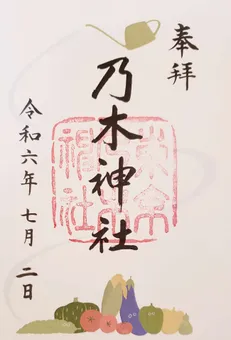 奉拝
乃木神社
令和六年七月二日